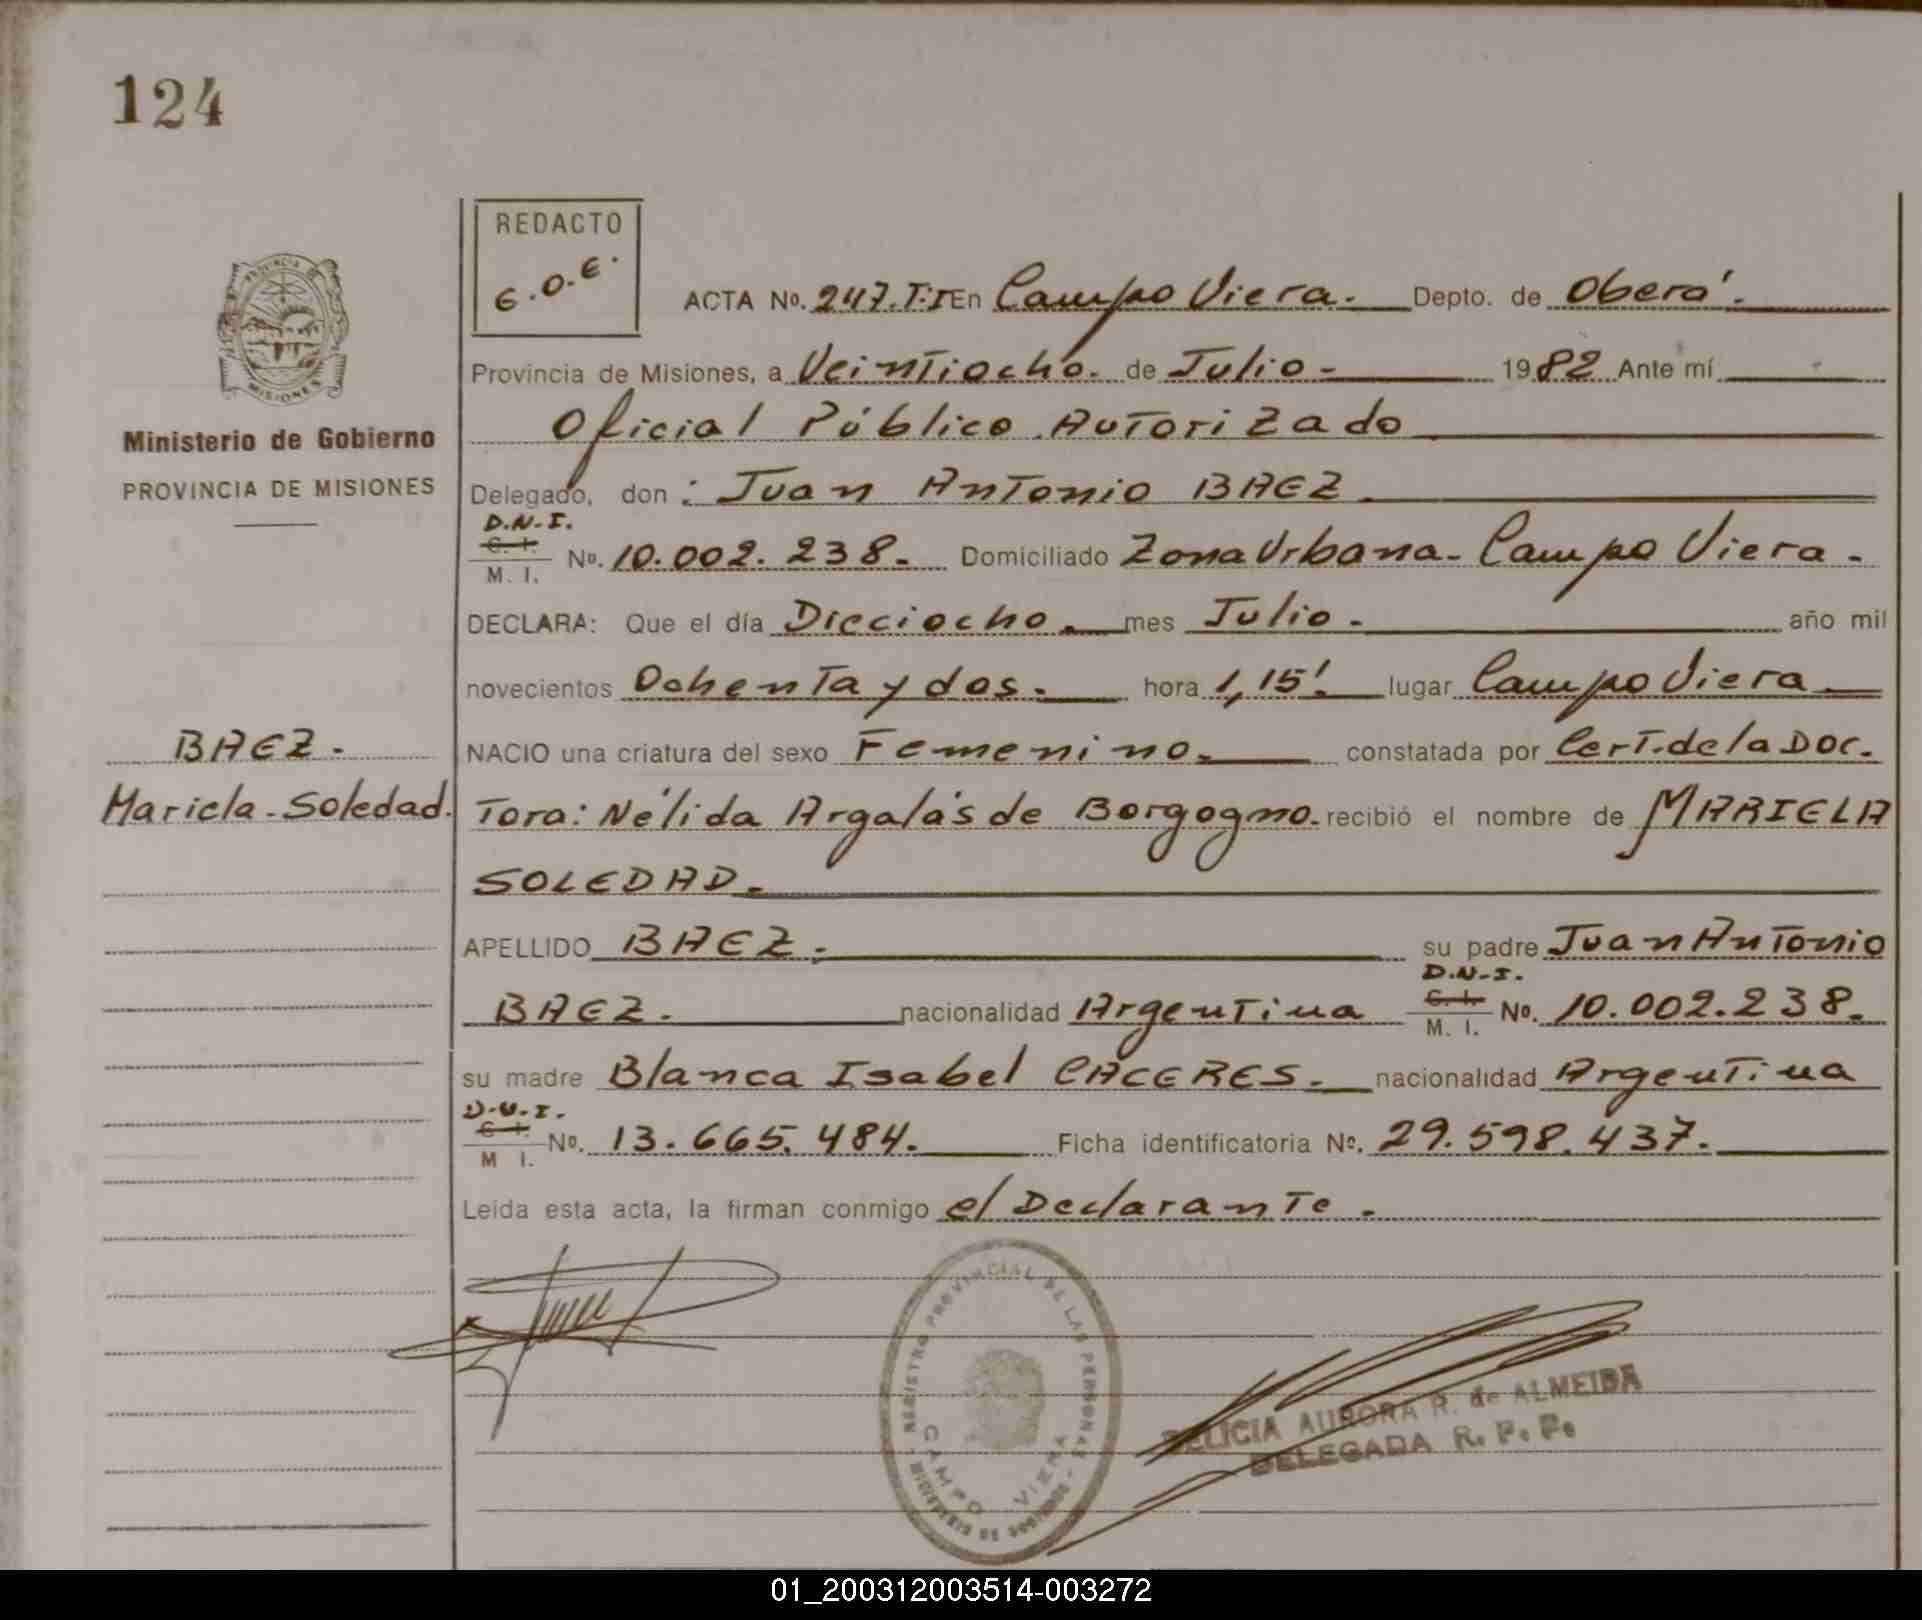 124
REDACTO
E.O.E.
PROVINCIA DE
MISIONES
Ministerio de Gobierno
PROVINCIA DE MISIONES
BAEZ.
Mariela-Soledad.
ACTA No. 247.T:I En Campo Viera. Depto. de Oberá.
Provincia de Misiones, a Veintiocho. de Julio - 1982 Ante mí
Oficial Público Autorizado
Delegado, don : Juan Antonio BAEZ.
D.N.I.
C. I.
M. I. No. 10.002.238. Domiciliado Zona Urbana - Campo Viera.
DECLARA: Que el día Dieciocho. mes Julio. año mil
novecientos Ochenta y dos. hora 1,15'. lugar Campo Viera
NACIO una criatura del sexo Femenino. constatada por Cert. de la Doc.
Tora: Nélida Argalás de Borgogno. recibió el nombre de MARIELA
SOLEDAD.
APELLIDO BAEZ. su padre Juan Antonio
BAEZ. nacionalidad Argentina D.N.I. C. I. M. I. No. 10.002.238.
su madre Blanca Isabel CACERES. nacionalidad Argentina
D.N.I.
C. I.
M I. No. 13.665.484. Ficha identificatoria No. 29.598.437.
Leída esta acta, la firman conmigo el Declarante.
REGISTRO PROVINCIAL DE LAS PERSONAS
CAMPO VIERA
DELICIA AURORA R. de ALMEIDA
DELEGADA R. P. P.
01_200312003514-003272